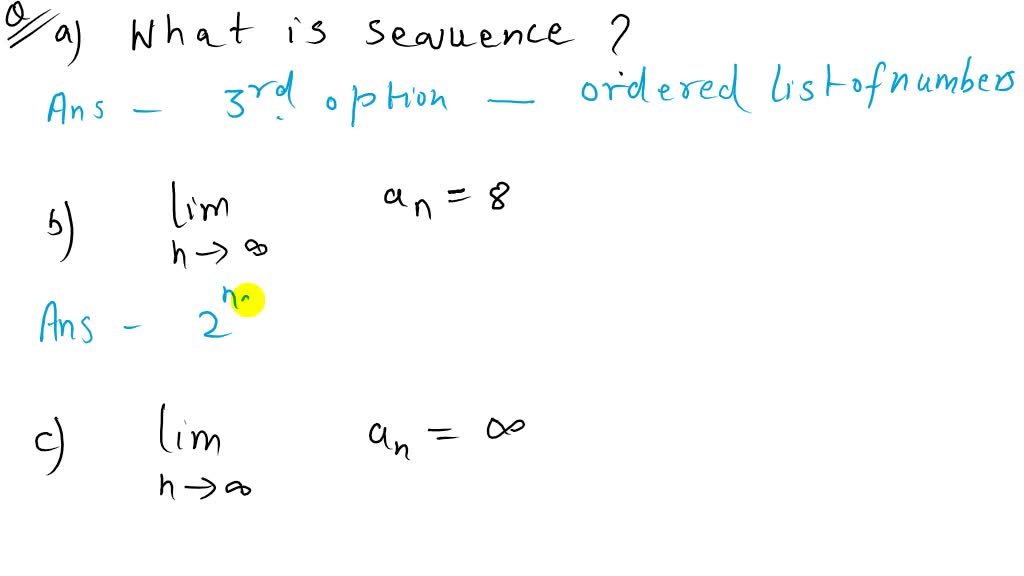 Q a) What is seauence ?
Ans - 3rd option - ordered list of numbers
b) lim n→∞ an = 8
Ans - 2n
c) lim n→∞ an = ∞